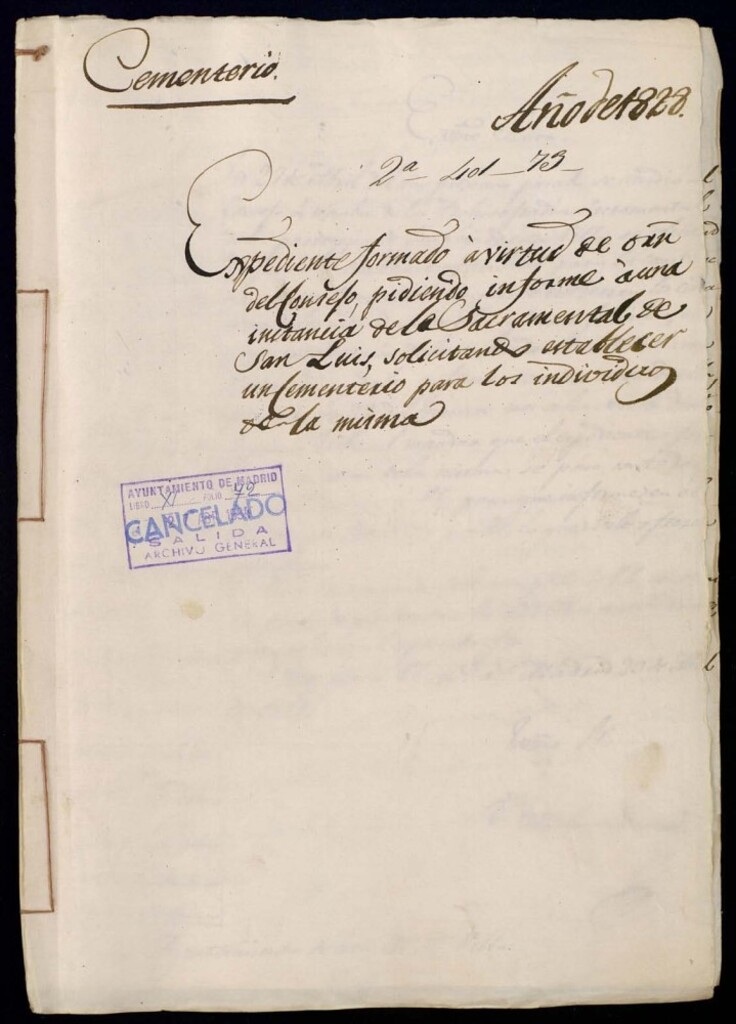 Cementerio.
Año de 1828.
2ª 401 73
Expediente formado à virtud de orñ
del Consejo, pidiendo informe à una
instancia de la Sacramental de
San Luis, solicitando establecer
un Cementerio para los individuos
de la misma
AYUNTAMIENTO DE MADRID
LIBRO XI FOLIO 72
CANCELADO
SALIDA
ARCHIVO GENERAL